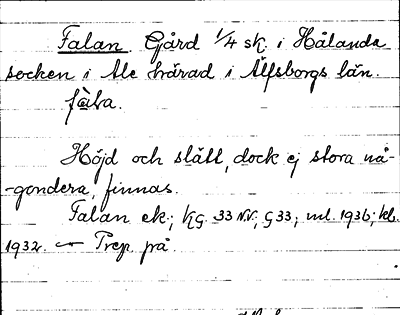 Falan. Gård 1/4 sk. i Hålanda
socken i Ale härad i Älfsborgs län.
fàla.
Höjd och slätt, dock ej stora nå-
-gondera, finnas.
Falan ek; KG. 33 N.V., G 33; ml. 1936; kb.
1932. — Prep. på